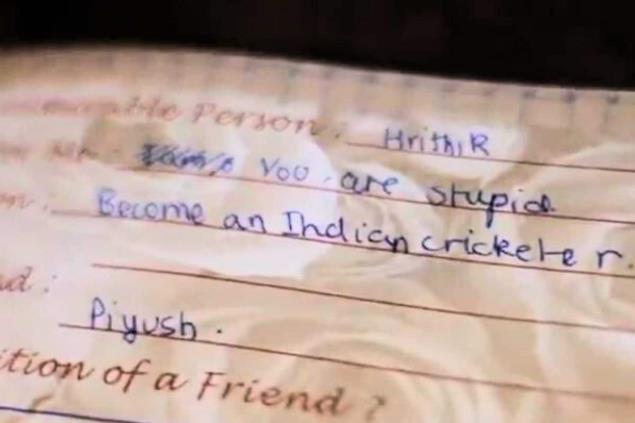 Person : Hrithik
You are stupid
Become an Indian cricketer.
Piyush.
tion of a Friend ?